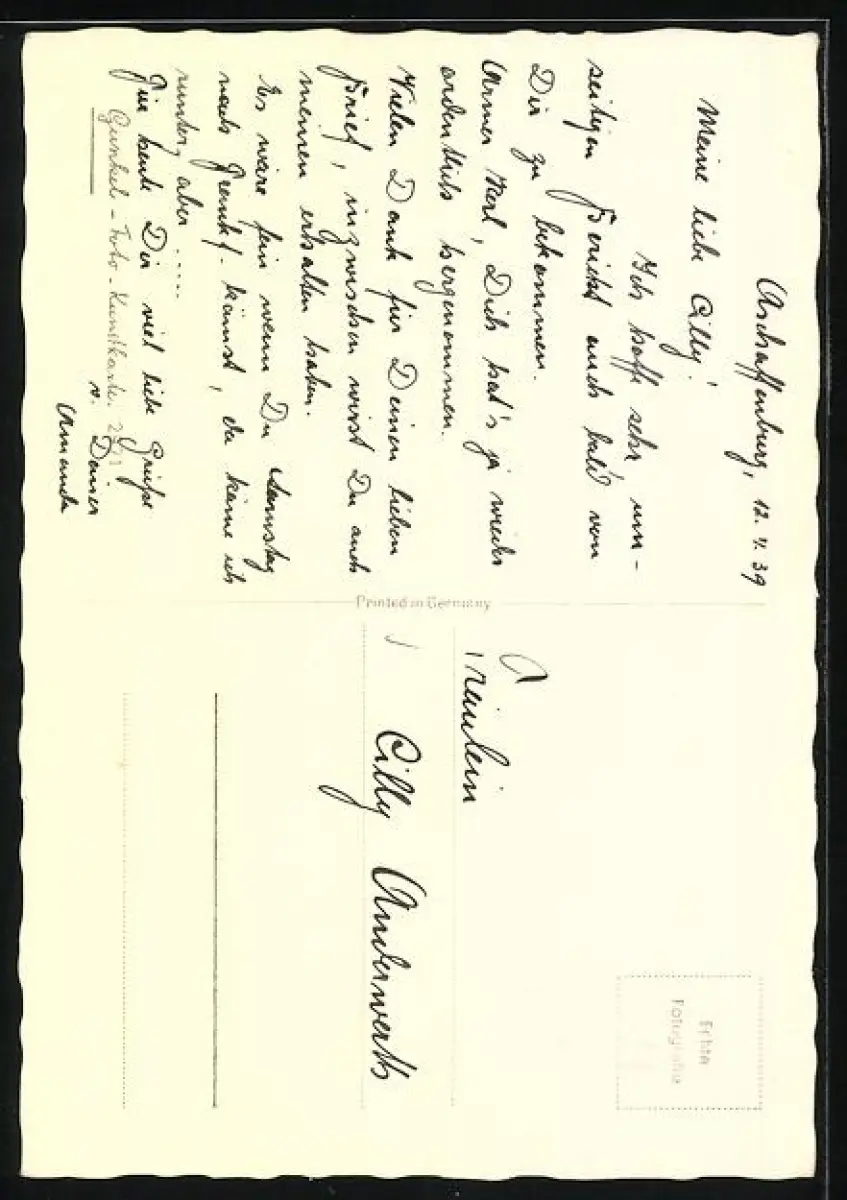 Aschaffenburg, 12. V. 39
Meine liebe Cilly!
Ich hoffe sehr um-
seitigen Bericht auch bald von
Dir zu bekommen.
Armer Kerl, Dich hat's ja wieder
ordentlich hergenommen.
Vielen Dank für Deinen lieben
Brief, inzwischen wirst Du auch
meinen erhalten haben.
Es wäre fein wenn Du Samstag
nach Frankf. kämst, da käme ich
runter, aber .....
Für heute Dir viel liebe Grüße
v. Deiner
Amanda
Gunkel-Foto-Kunstkarte.
Printed in Germany
Echte
Fotografie
Fräulein
Cilly Anderwerth